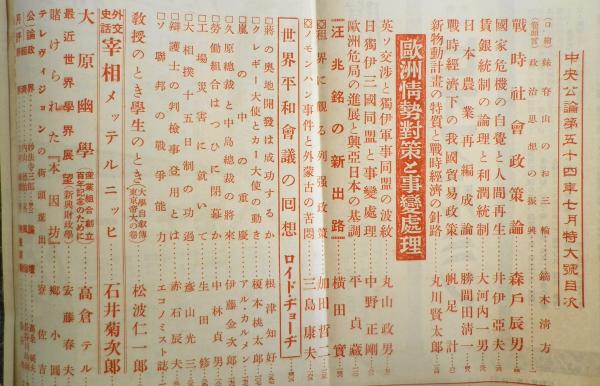 中央公論第五十四年七月特大號目次
(口繪) 蘇春山のお三輪 鏑木清方
(卷頭言) 政治思想の振興
戰時社會政策論 森戶辰男
國家危機の自覺と人間再生 井伊亞夫
賃銀統制の論理と利潤統制 大河內一男
日本農業再編成論 勝間田清一
戰時經濟下の我國貿易政策 帆足計
新物動計畫の特質と戰時經濟の針路 丸川賢太郎
歐洲情勢對策と事變處理
英ソ交涉と獨伊軍事同盟の波紋 丸山政男
日獨伊三國同盟と事變處理 中野正剛
歐洲危局の進展と興亞日本の基調 平貞藏
汪兆銘の新出路 橫田實
租界に觀る列强政策 加田哲二
ノモンハン事件と外蒙古の苦悶 三島康夫
世界平和會議の囘想 ロイドヂョーヂ
□蔣の奧地開發は成功するか 根津知好
□クレギー大使とカー大使の動き 榎本桃太郎
□嵐の中の重慶 アル・カルメン
□久原總裁と中島總裁の將來 伊藤金次郎
□勞働組合はつひに閉幕か 中林貞男
□工場災害に就いて 生田修
□大相撲十五日制の功過 彥山光三
□辯護士の判檢事登用とは 赤石辰夫
□ソ聯邦の戰爭能力 エコノミスト誌
敎授のとき學生のとき (大學自敍傳 東京帝大の卷) 松波仁一郎
外交史話 宰相メッテルニッヒ 石井菊次郎
大原幽學 (產業組合創立百年記念のために) 高倉テル
最近世界學界展望 (新興財政學) 安藤春夫
賭けられた『本因坊』 鄕小圓
テレヴィジョンの街頭進出 寮佐吉